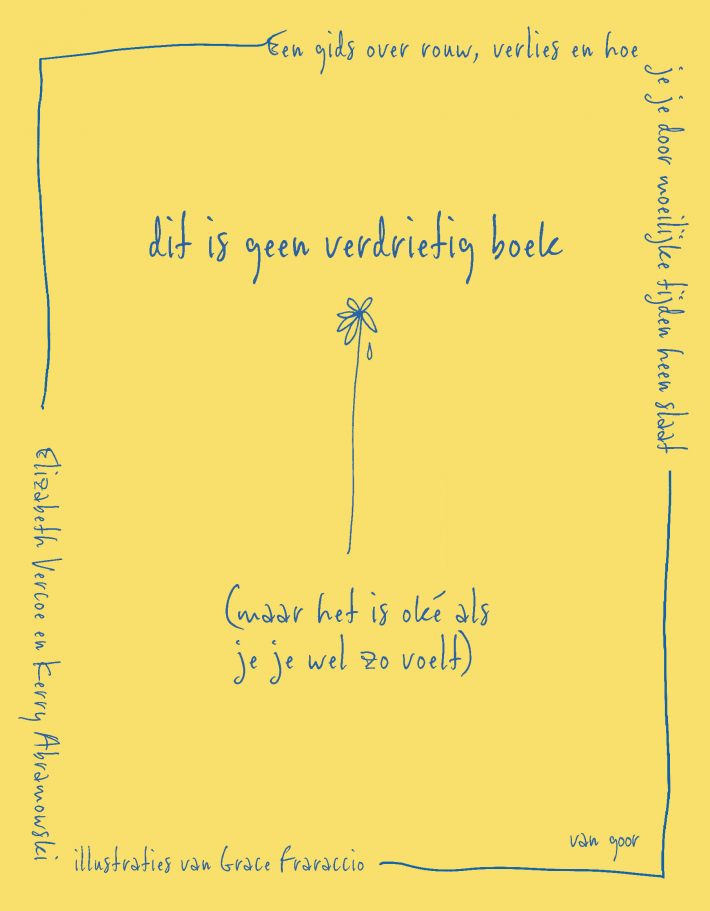 Een gids over rouw, verlies en hoe
je je door moeilijke tijden heen slaat
dit is geen verdrietig boek
(maar het is oké als
je je wel zo voelt)
Elizabeth Vercoe en Kerry Abramowski
illustraties van Grace Fraraccio
van goor